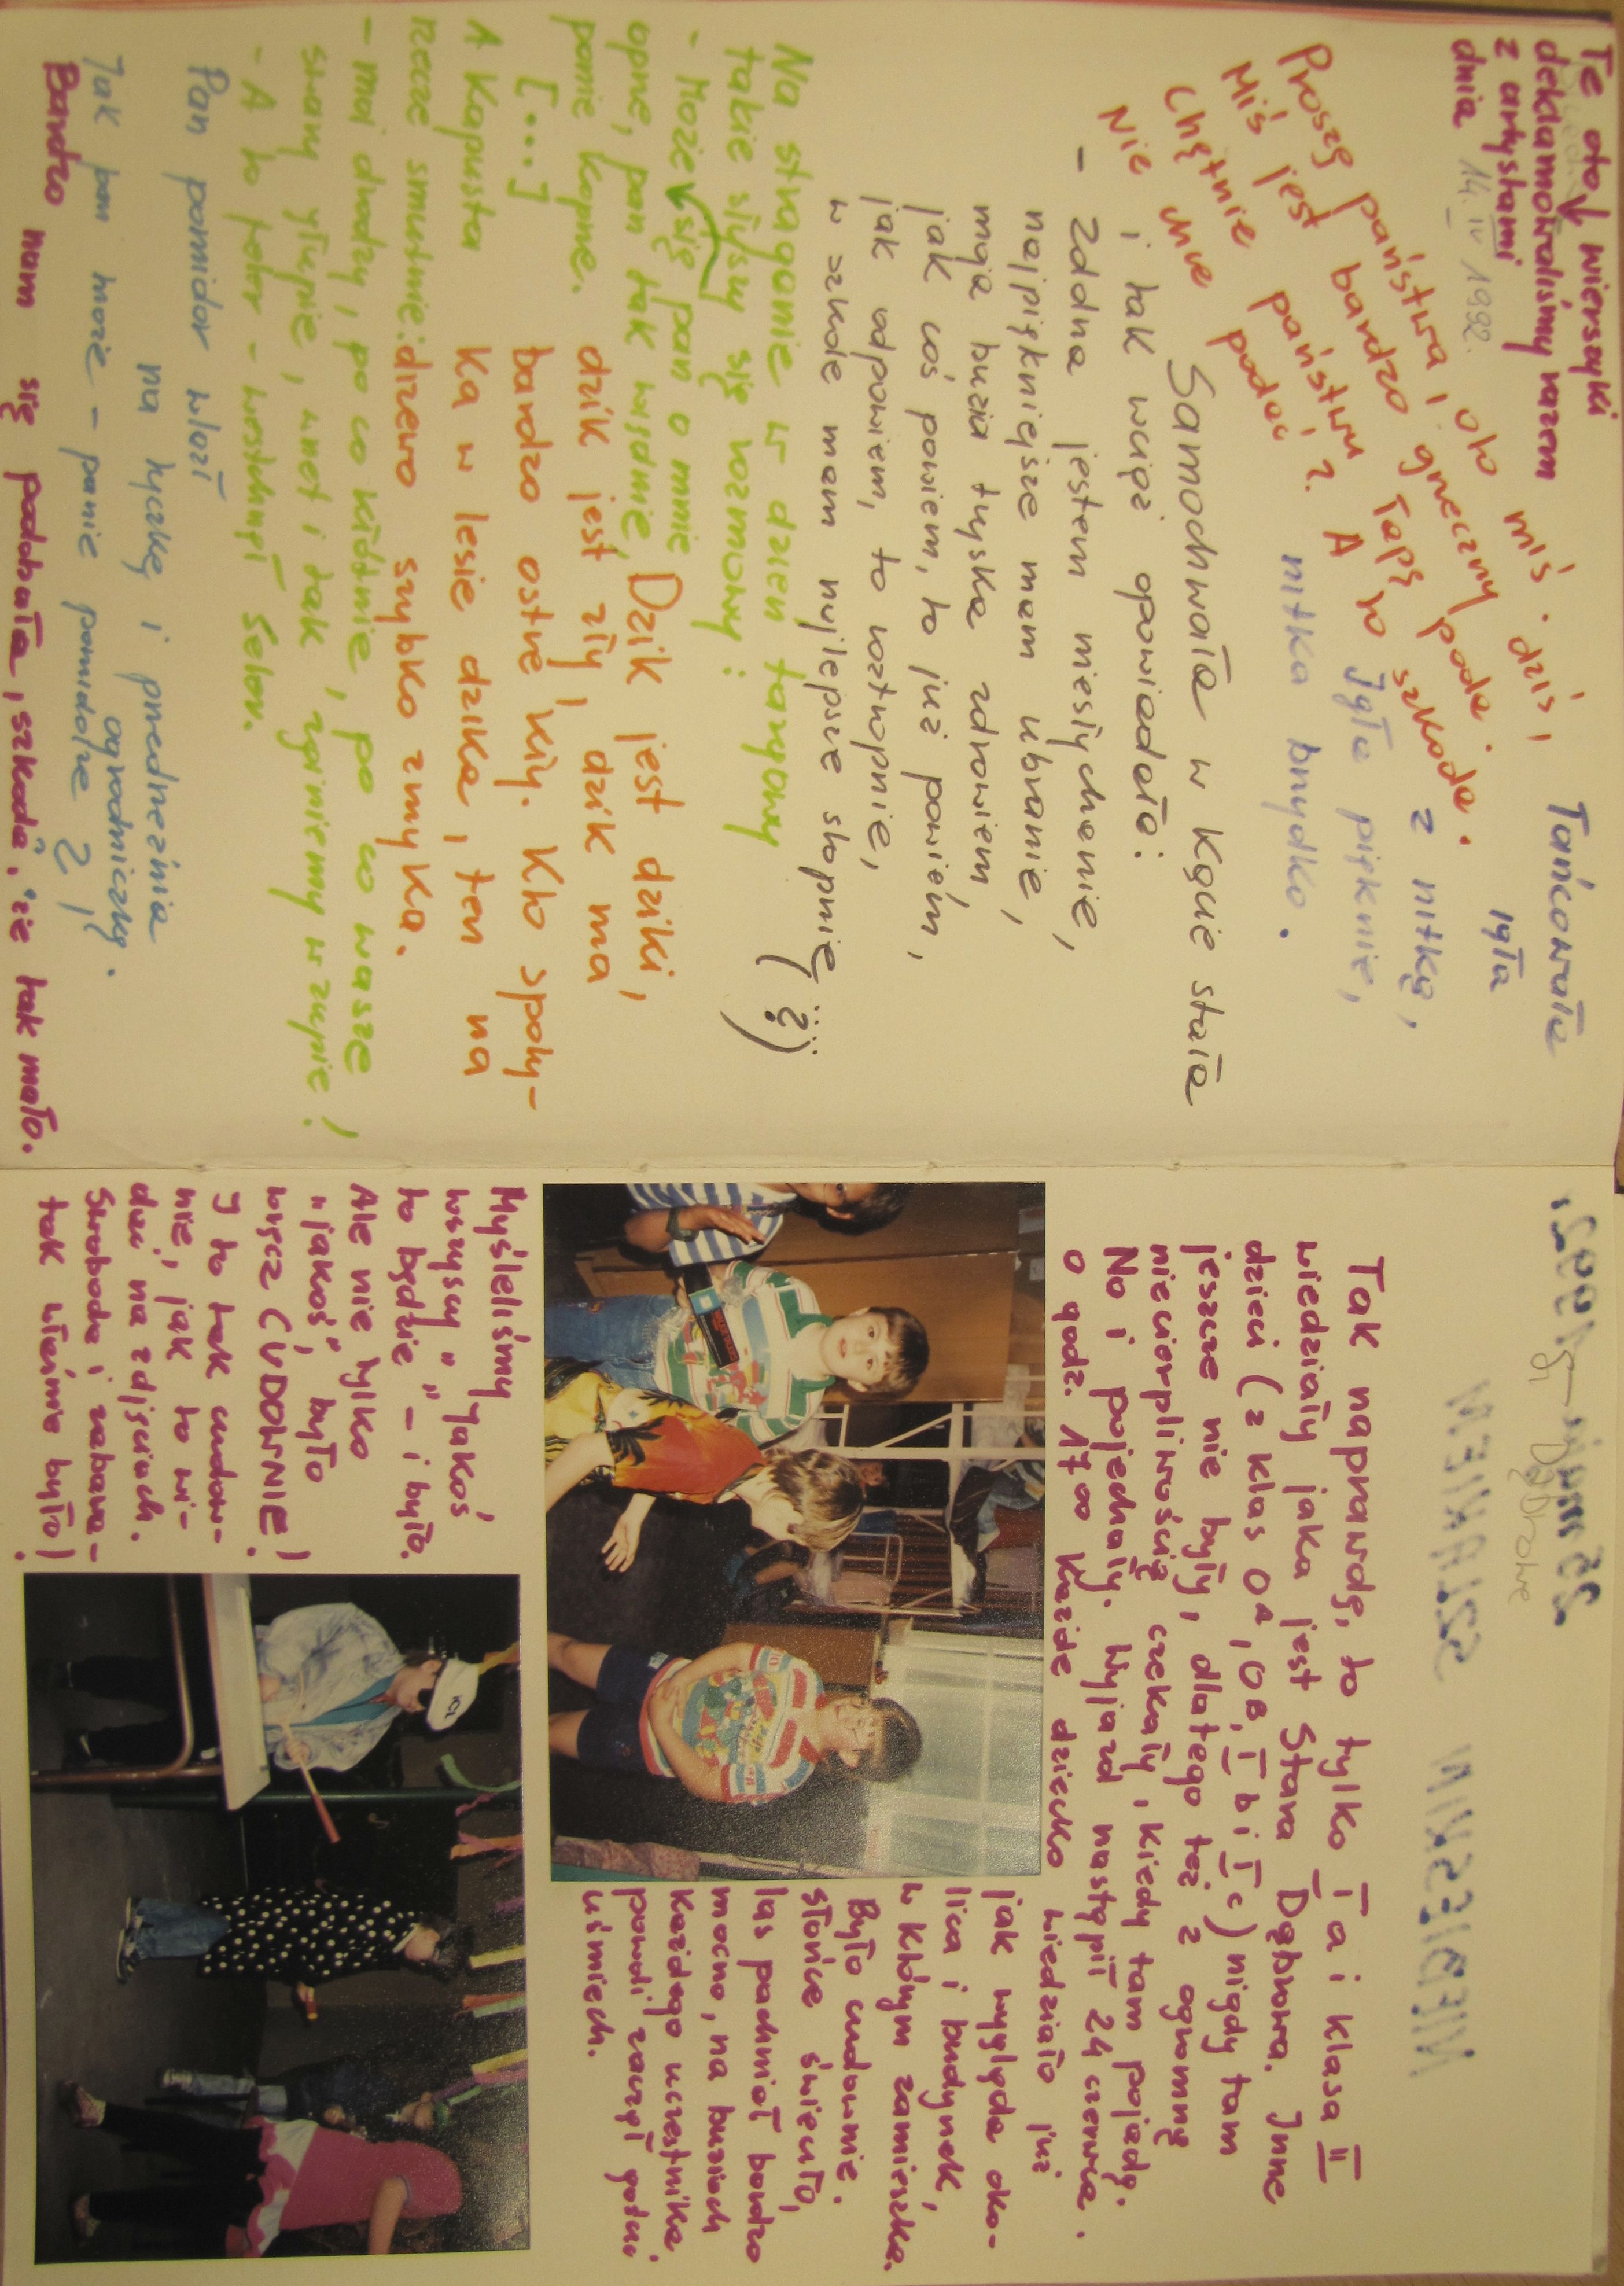 Te oto wierszyki
deklamowaliśmy razem
z artystami
dnia 14. IV 1992.
Proszę państwa, oto miś.
Miś jest bardzo grzeczny dziś,
Chętnie państwu łapę poda.
Nie chce podać? A to szkoda.
Tańcowała
igła
z nitką,
Igła pięknie,
nitka brzydko.
Samochwała w kącie stała
i tak wciąż opowiadała:
- Zdolna jestem niesłychanie,
najpiękniejsze mam ubranie,
moja buzia tryska zdrowiem,
jak coś powiem, to już powiem,
jak odpowiem, to roztropnie,
w szkole mam najlepsze stopnie
(?)
Na straganie w dzień targowy
takie słyszy się rozmowy:
- Może się pan o mnie
oprze, pan tak więdnie,
panie koprze.
[...]
A Kapusta
rzecze smutnie:
- moi drodzy, po co kłótnie, po co wasze
swary głupie, wnet i tak zginiemy w zupie!
- A to feler - westchnął Seler.
Dzik jest dziki,
dzik jest zły, dzik ma
bardzo ostre kły. Kto spoty-
ka w lesie dzika, ten na
drzewo szybko zmyka.
Pan pomidor wlazł
na tyczkę i przedrzeźnia
ogrodniczkę.
Jak pan może - panie pomidorze?!
Bardzo nam się podobało, szkoda, że tak mało.
Dąbrowie
Tak naprawdę, to tylko I a i klasa II
wiedziały jaka jest Stara Dąbrowa. Inne
dzieci (z klas 0A, 0B, I b i I c) nigdy tam
jeszcze nie były, dlatego też z ogromną
niecierpliwością czekały, kiedy tam pojadą.
No i pojechały. Wyjazd nastąpił 24 czerwca.
o godz. 17 00 Każde dziecko wiedziało już
jak wygląda oko-
lica i budynek,
w którym zamieszka.
Było cudownie.
Słońce świeciło,
las pachniał bardzo
mocno, na buziach
każdego uczestnika
powoli zaczął gościć
uśmiech.
Myśleliśmy
wszyscy "jakoś
to będzie" - i było.
Ale nie tylko
"jakoś", było
wręcz CUDOWNIE!
I to tak cudow-
nie, jak to wi-
dać na zdjęciach.
Swoboda i zabawa -
tak właśnie było!